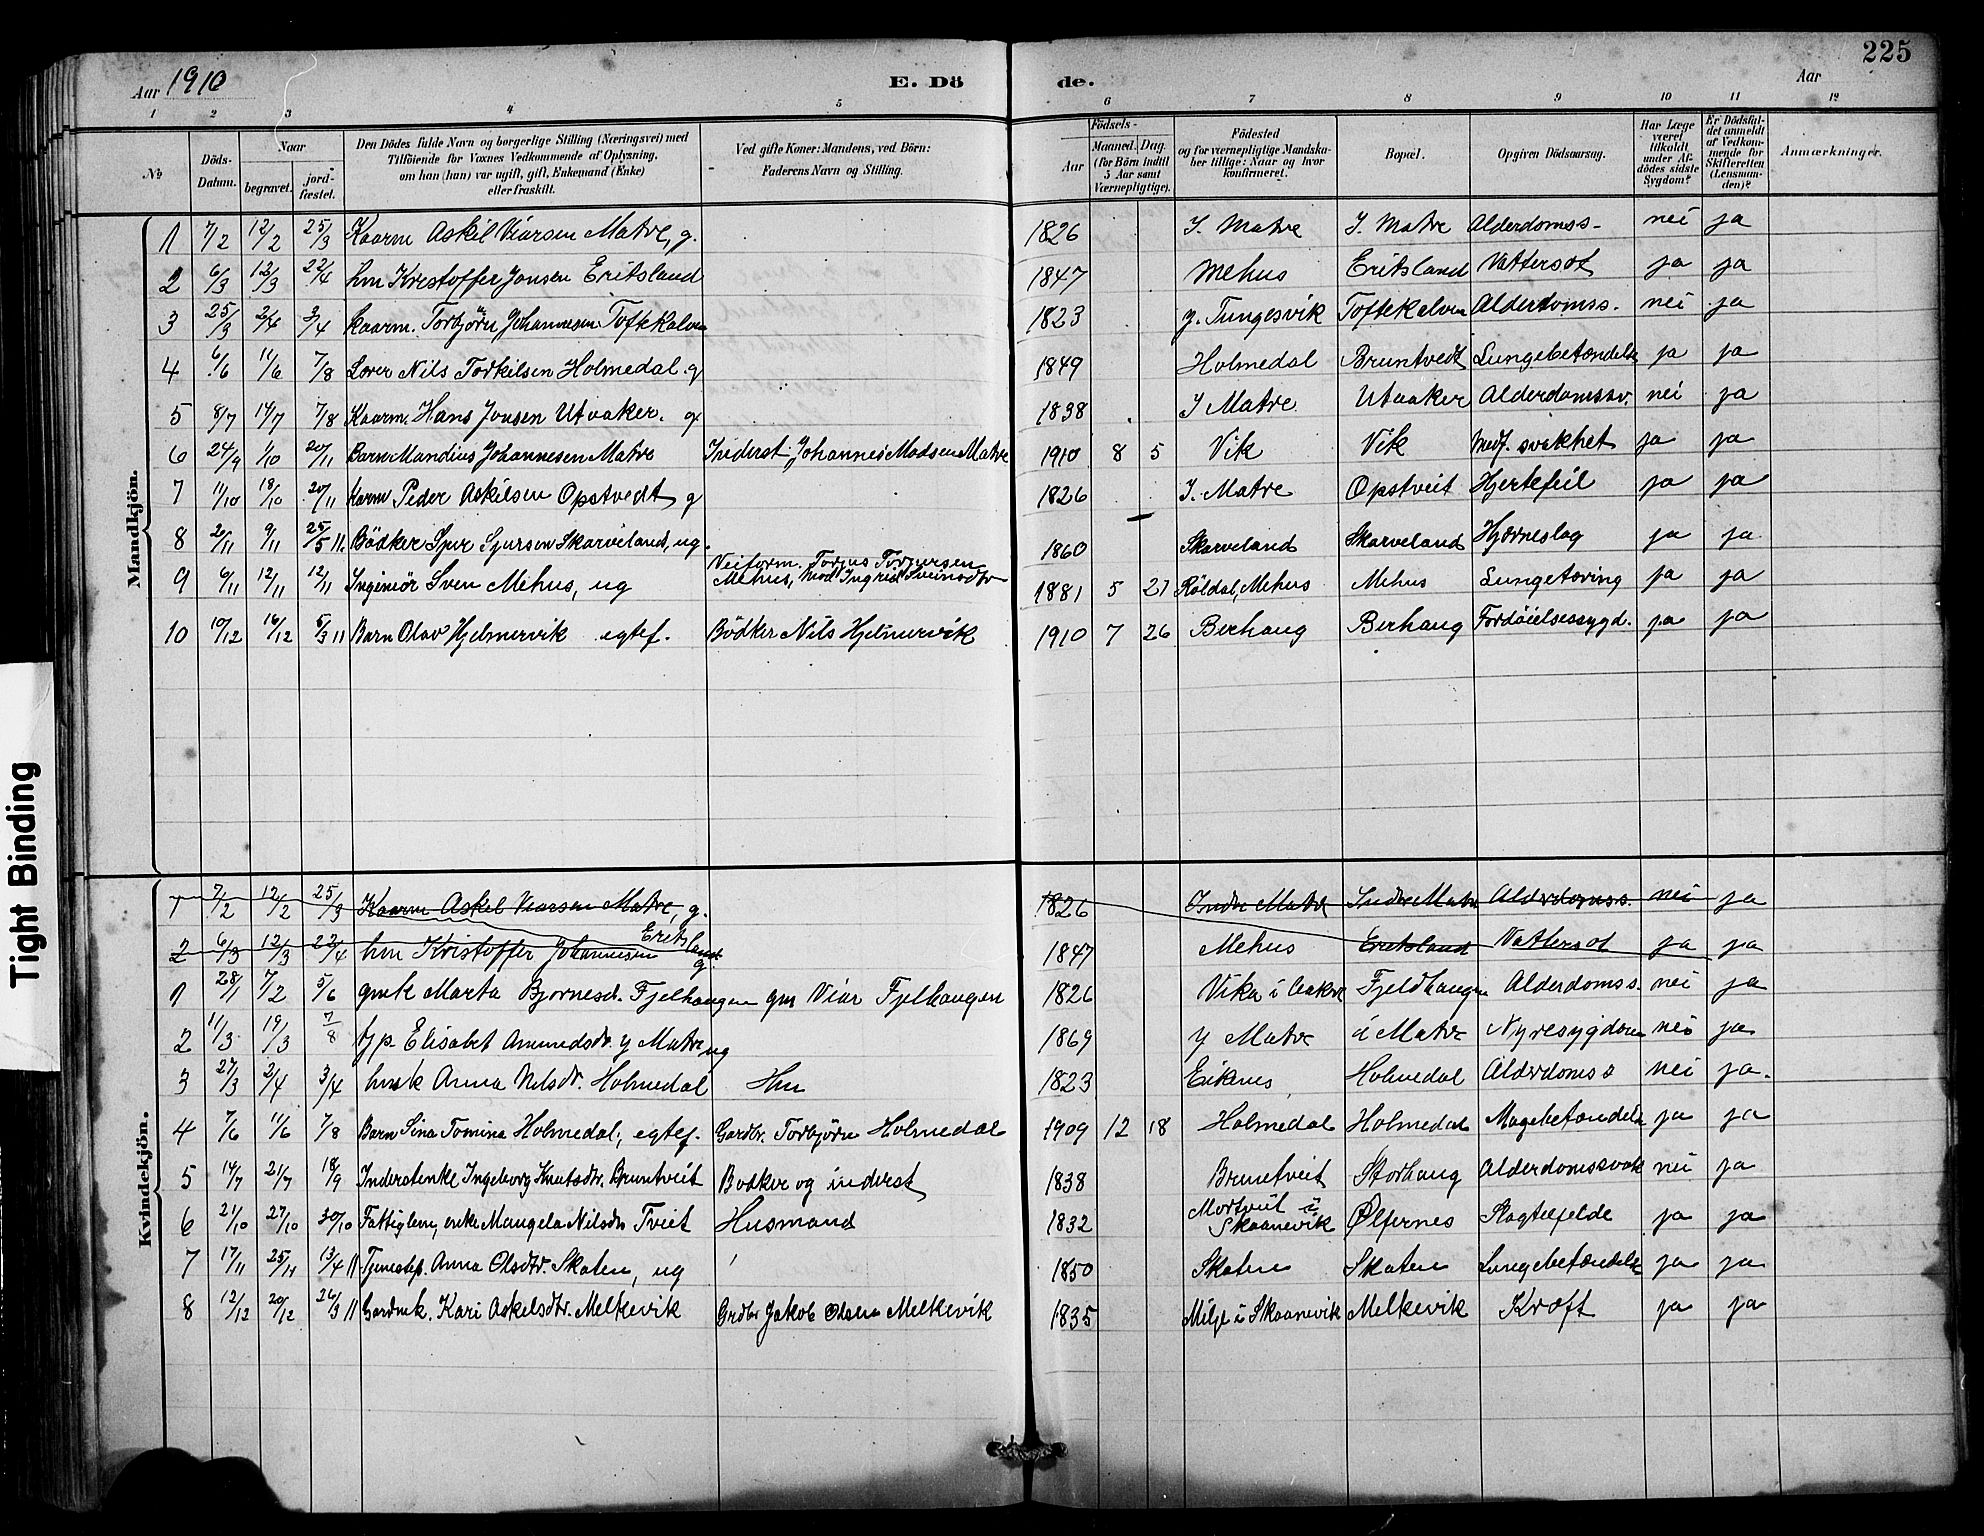 225
Aar 1910 E. Dö de. Aar
1 2 3 4 5 6 7 8 9 10 11 12
№ Döds-Datum. Naar begravet. jordfæstet. Den Dödes fulde Navn og borgerlige Stilling (Næringsvei) med Tilföiende for Voxnes Vedkommende af Oplysning, om han (hun) var ugift, gift, Enkemand (Enke) eller fraskilt. Ved gifte Koner: Mandens, ved Börn: Faderens Navn og Stilling. Födsels- Aar Maaned. Dag. (for Börn indtil 5 Aar samt Værnepligtige). Födested og for værnepligtige Mandskaber tillige: Naar og hvor konfirmeret. Bopæl. Opgiven Dödsaarsag. Har Læge været tilkaldt under Afdödes sidste Sygdom? Er Dödsfaldet anmeldt af Vedkommende for Skifteretten (Lensmanden)? Anmærkninger.
Mandkjön.
1 7/2 12/2 25/3 Kaarm Askil Viarsen Matre, g. 1826 I. Matre I. Matre Alderdomss. nei ja
2 6/3 12/3 22/4 hm Kristoffer Jonsen Eritsland 1847 Mehus Eritsland Vattersot ja ja
3 25/3 2/4 3/4 kaarm. Torbjörn Johannesen Toftekalven 1823 y. Tungesvik Toftekalven Alderdomss. nei ja
4 6/6 11/6 7/8 Lærer Nils Torkilsen Holmedal g 1849 Holmedal Bruntvedt Lungebetændelse ja ja
5 8/7 14/7 7/8 Kaarm. Hans Jonsen Utvaaker. g. 1838 I Matre Utaaker Alderdomssv. nei ja
6 24/9 1/10 20/11 Barn Mandius Johannesen Matre Inderst Johannes Madsen Matre 1910 8 5 Vik Vik Medf. svakhet ja ja
7 11/10 18/10 20/11 Karm Peder Askilsen Opstvedt g 1826 I. Matre Opstveit Hjertefeil ja ja
8 2/11 9/11 25/5 11. Bödker Sjur Sjursen Skarveland, ug. 1860 Skarveland Skarveland Hjerneslag ja ja
9 6/11 12/11 12/11 Ingeniör Sven Mehus, ug Veiform. Torjus Torjursen Mehus, mod. Ingrid Sveinsdtr 1881 5 27 Röldal, Mehus Mehus Lungetæring ja ja
10 10/12 16/12 5/3 11 Barn Olav Hjelmervik egtef. Bödker Nils Hjelmervik 1910 7 26 Berhaug Berhaug Fordöielsessygd. ja ja
Kvindekjön.
1 7/2 12/2 25/3 Kaarm Askel Viarsen Matre, g. 1826 Indre Matre Indre Matre Alderdomss. nei ja
2 6/3 12/3 22/4 hm Kristoffer Johannesen Eritsland g. 1847 Mehus Eretsland Vattersot ja ja
1 28/1 7/2 5/6 gmk Marta Bjornesd. Fjelhaugen gm Viar Fjelhaugen 1826 Vika i Fjeldhaugen Alderdomss. nei ja
2 11/3 19/3 7/8 typ. Elisabet Amundsdr. y Matre ug 1869 y Matre i Matre Nyresygdom nei ja
3 27/3 2/4 3/4 hmk Anna Nilsdr. Holmedal Hm 1823 Eiknes Holmedal Alderdomss nei ja.
4 7/6 11/6 7/8 Barn Sina Tomina Holmedal, egtef. Gardbr. Torbjörn Holmedal 1909 12 18 Holmedal Holmedal Magebetændelse ja ja
5 14/7 21/7 18/9 Inderstenke Ingeborg Knutsdtr. Bruntveit Bodker og inderst 1838 Bruntveit Storhaug Alderdomssvak nei ja
6 21/10 27/10 30/10 Fattiglem, enke Mangela Nilsdtr Tveit Husmand 1832 Mortveit i Skaanevik Ølfernes Slagtilfelde ja ja
7 17/11 25/11 13/4 11 Tjenestep. Anna Olsdtr. Skaten, ug 1850 Skaten Skaten Lungebetændelse ja ja
8 12/12 20/12 26/3 11 Gardmk. Kari Askelsdtr. Melkevik Grdbr Jakob Olsen Melkevik 1835 Milje i Skaanevik Melkevik Kræft ja ja
Tight Binding